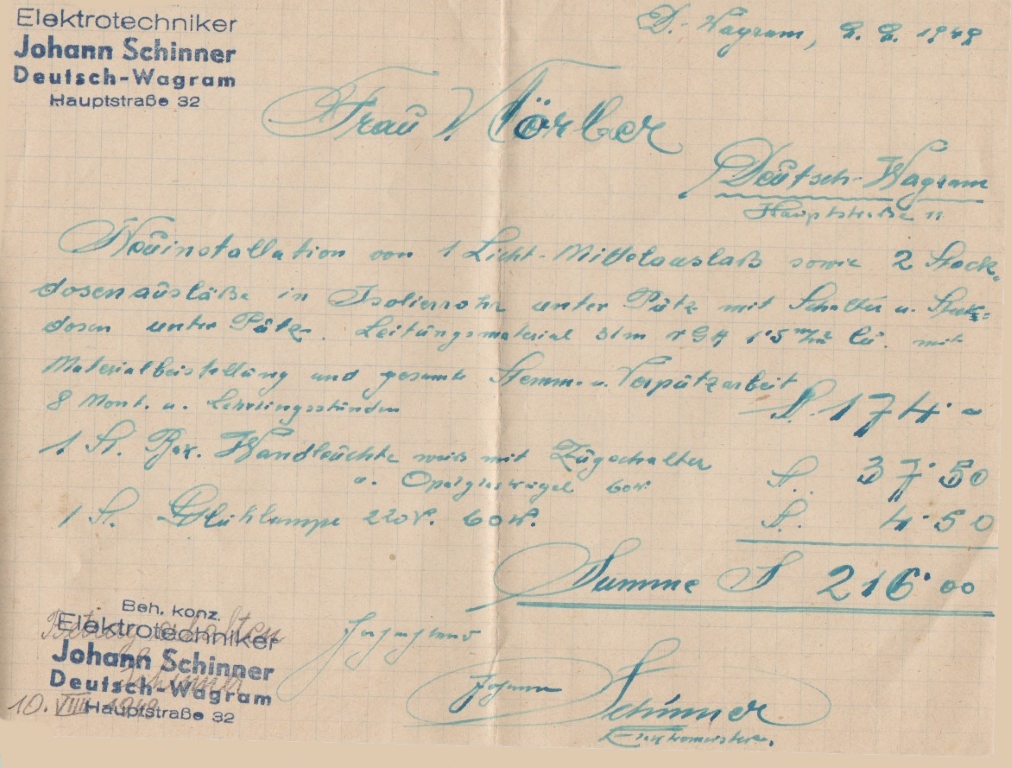 Elektrotechniker
Johann Schinner
Deutsch-Wagram
Hauptstraße 32
D.-Wagram, 8. 8. 1949
Frau Nörber
Deutsch-Wagram
Hauptstraße 11
Neuinstallation von 1 Licht-Mittelauslaß sowie 2 Steck=
dosenauslässe in Isolierrohr unter Putz mit Schalter u. Steck=
dosen unter Putz. Leitungsmaterial 1'5 mit
Materialbeistellung und gesamte Stemm- u. Verputzarbeit
8 Mont. u. Lehrlingsstunden S. 174·-
1 St. Wandleuchte weiß mit Zugschalter
u. Opalglaskugel 60W. S. 37·50
1 St. Glühlampe 220V. 60W. S. 4·50
Summe S 216·00
Betrag erhalten
Beh. konz.
Elektrotechniker
Johann Schinner
Deutsch-Wagram
Hauptstraße 32
Schinner
10. VIII. 1949
Johann Schinner
Elektromeister.